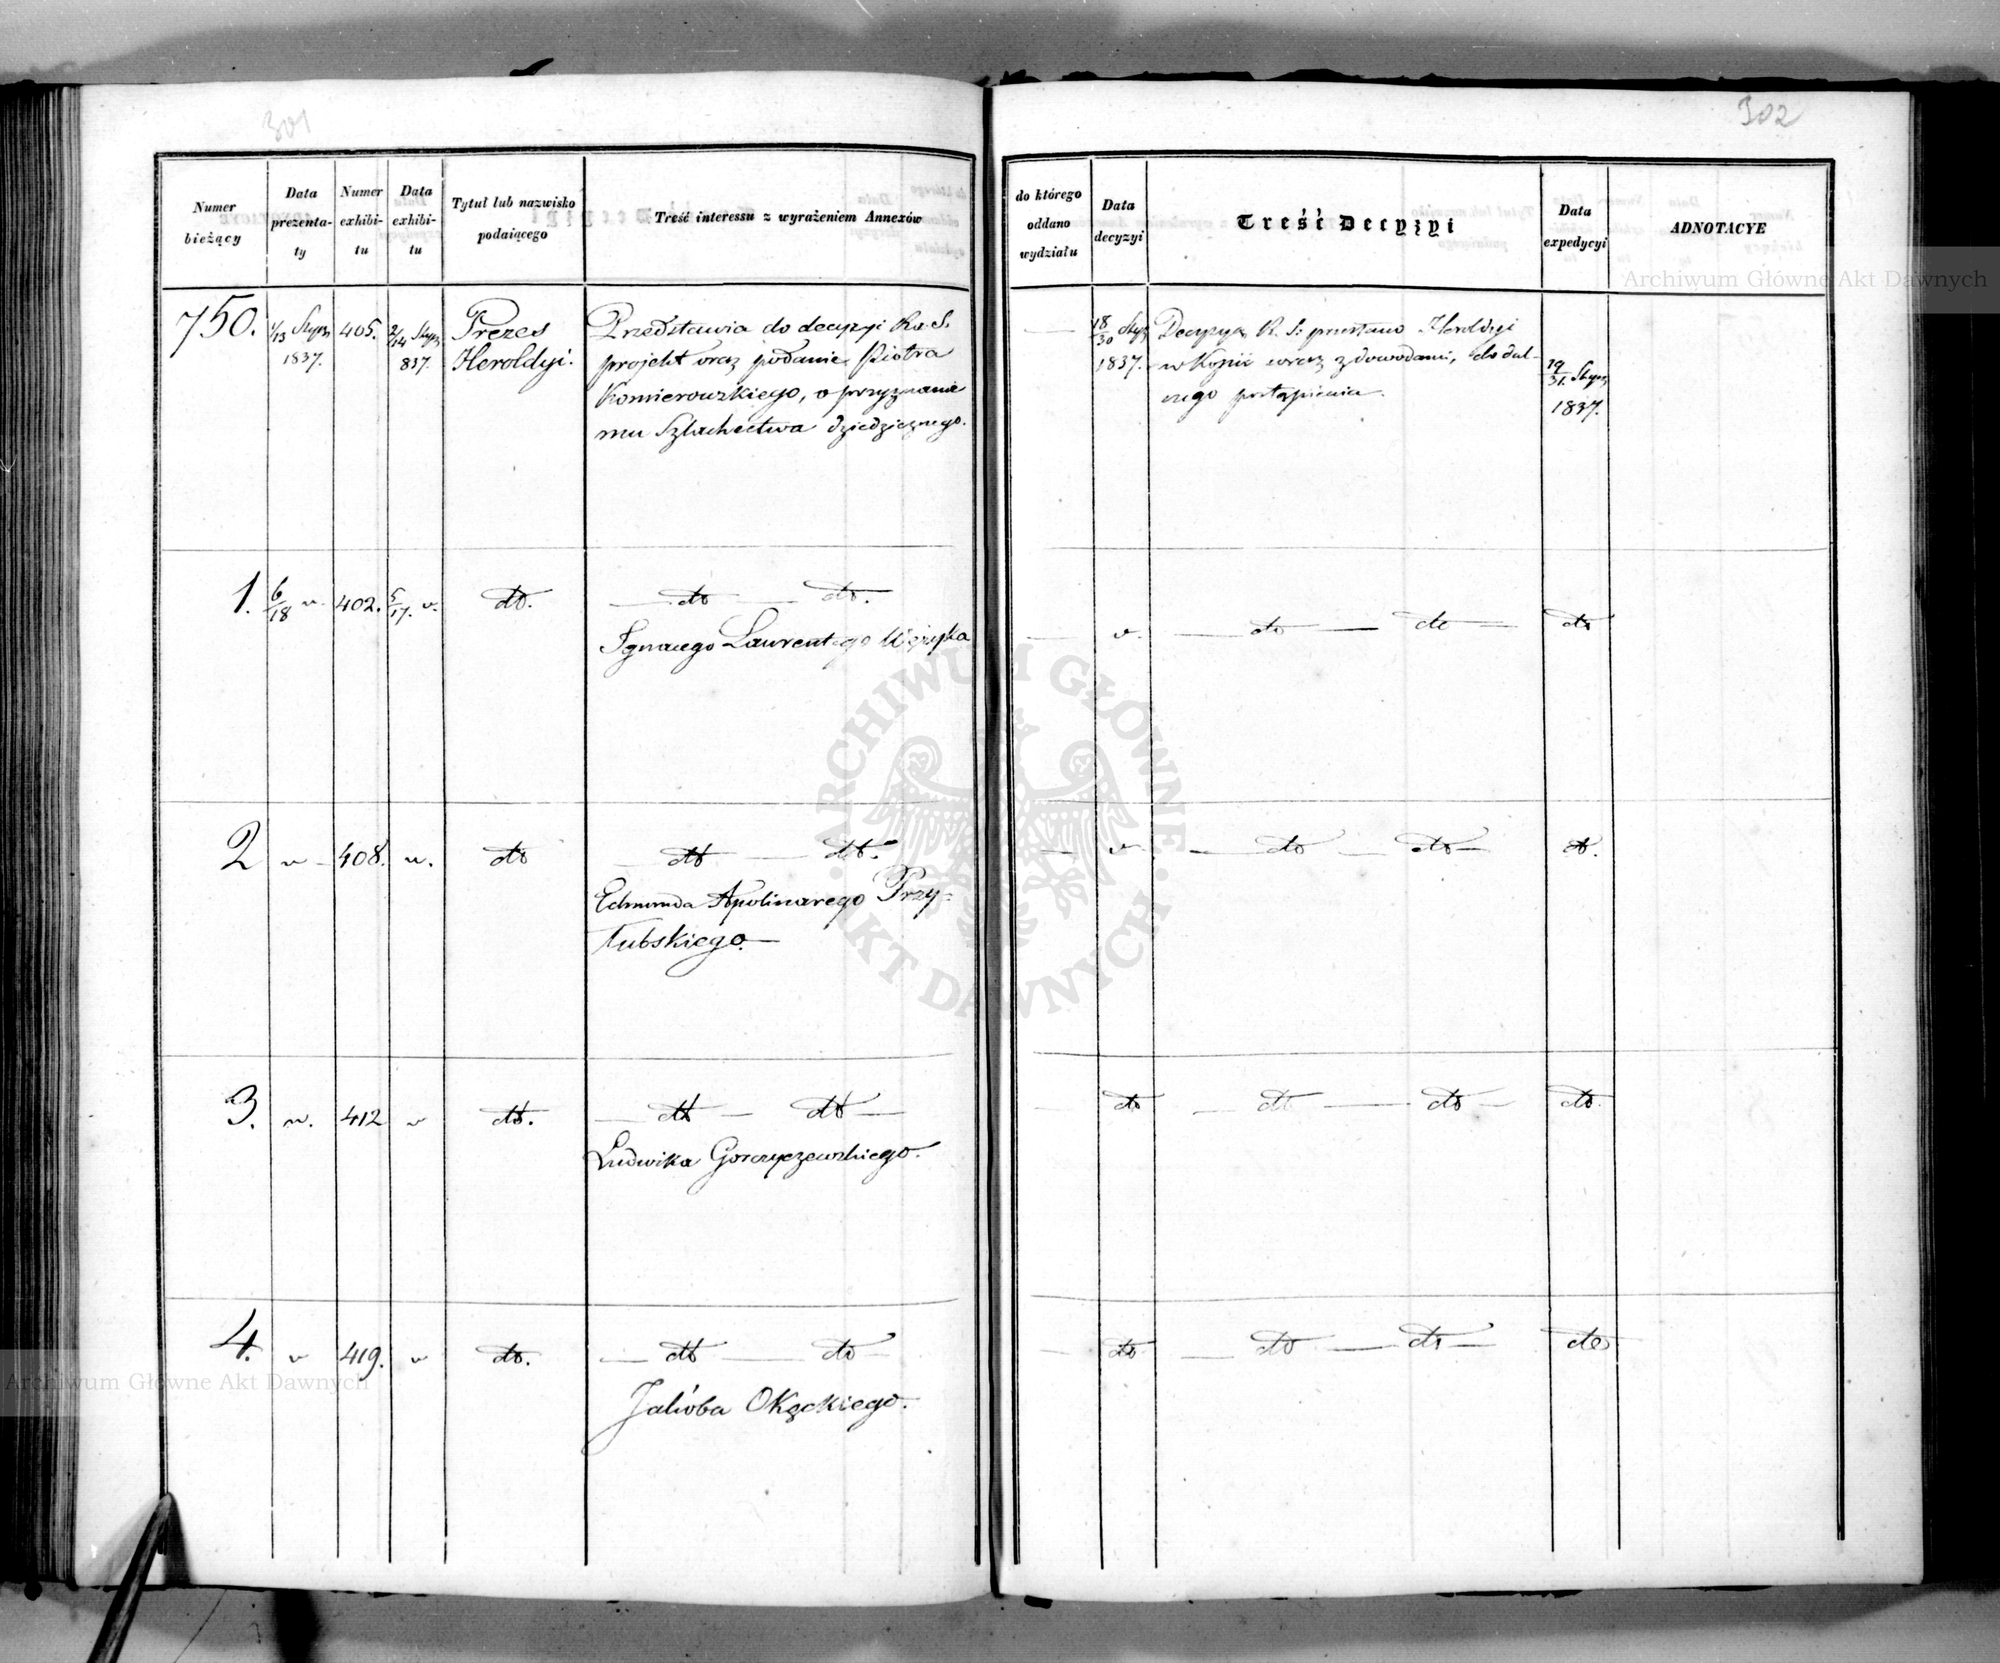 301
302
Numer bieżący
Data prezenta-ty
Numer exhibi-tu
Data exhibi-tu
Tytuł lub nazwisko podaiącego
Treść interessu z wyrażeniem Annexów
do którego oddano wydziału
Data decyzyi
Treść Decyzyi
Data expedycyi
ADNOTACYE
750. 1/13 Stycz 1837. 405. 2/14 Stycz 837.
Prezes
Heroldyi.
Przedstawia do decyzyi Ra. S.
projekt oraz podanie Piotra
Komierowskiego, o przyznanie
mu Szlachectwa dziedzicznego.
18/30 Stycz 1837.
Decyzyą R. S. przesłano Heroldyi
w Kopii wraz z dowodami, do dal-
szego postąpienia.
19/31. Stycz 1837.
1. 6/18 " 402. 5/17. " dto. — dto — dto.
Ignacego Laurentego
— " — dto — dto — dto
2 " 408. " dto — dto — dto.
Edmunda Apolinarego Przy-
łubskiego. —
— " — dto — dto — dto.
3. " 412 " dto. — dto — dto —
Ludwika Gorczyczewskiego.
— dto — dto — dto — dto.
4. " 419. " dto. — dto — dto —
Jakóba Okęckiego.
— dto — dto — dto — dto
Archiwum Główne Akt Dawnych
Archiwum Główne Akt Dawnych
ARCHIWUM GŁÓWNE · AKT DAWNYCH ·